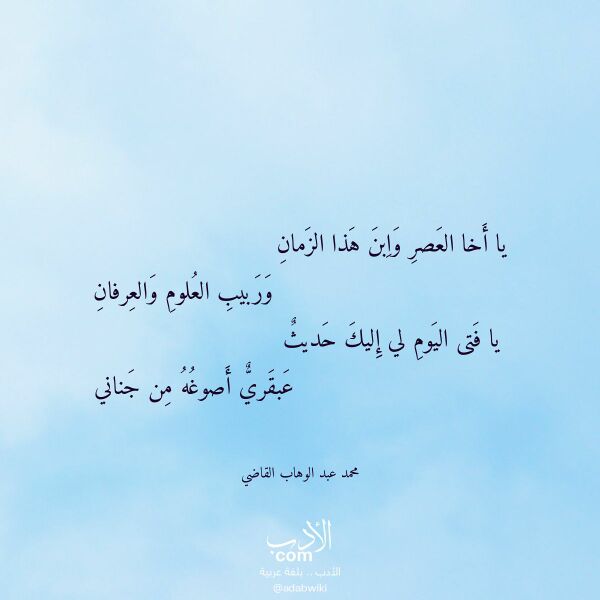 يا أَخا العَصرِ وَاِبنَ هَذا الزَمانِ
وَرَبيبِ العُلومِ وَالعِرفانِ
يا فَتى اليَومِ لي إِليكَ حَديثٌ
عَبقَريٌّ أَصوغُهُ مِن جَناني
محمد عبد الوهاب القاضي
الأدب
com
الأدب .. بلغة عربية
@adabwiki